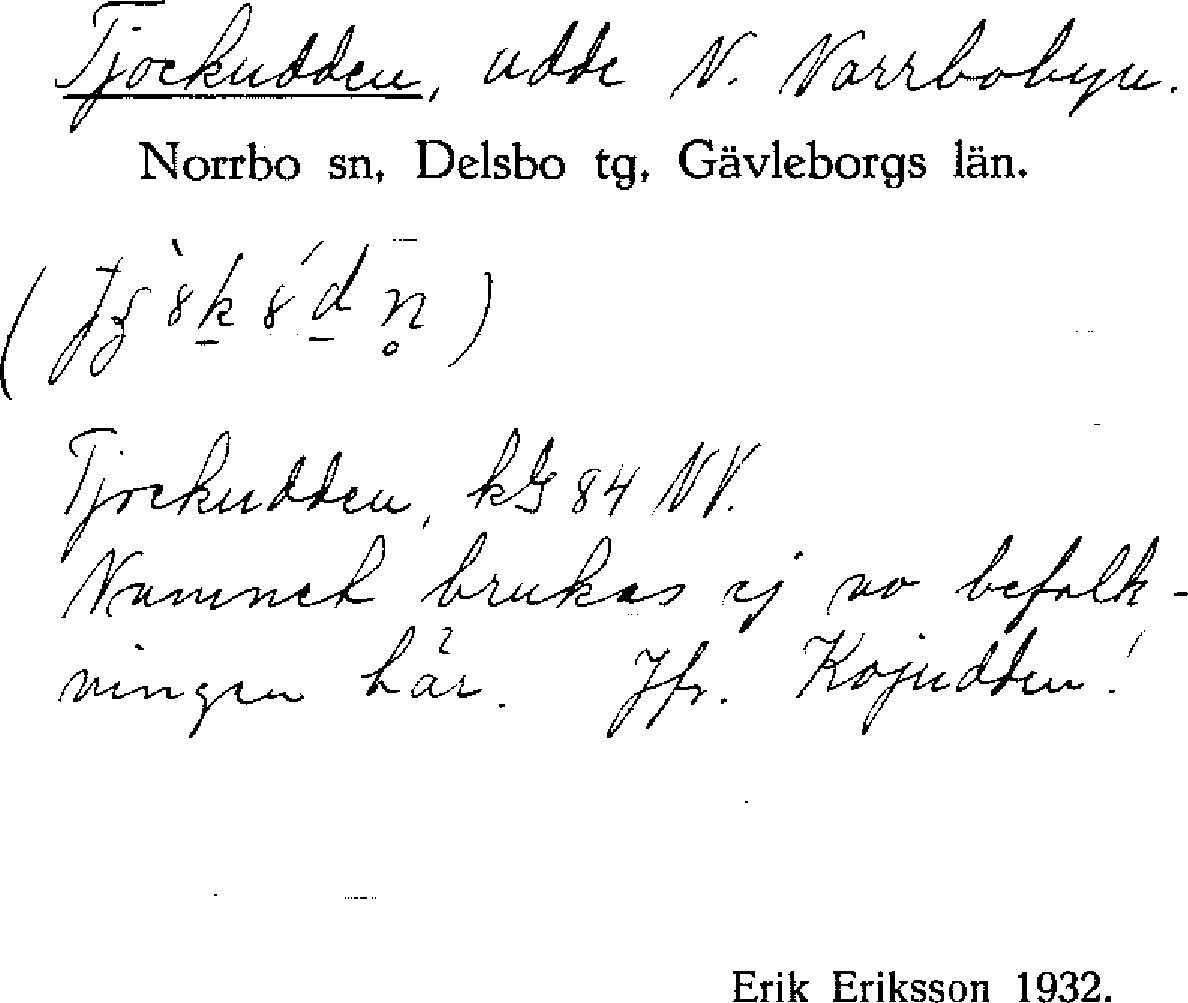 Tjockudden, udde N. Norrbobyn.
Norrbo sn, Delsbo tg, Gävleborgs län.
Tjockudden, kG 84 NV.
Namnet brukas ej av befolk-
ningen här. Jfr. Kojudden!
Erik Eriksson 1932.